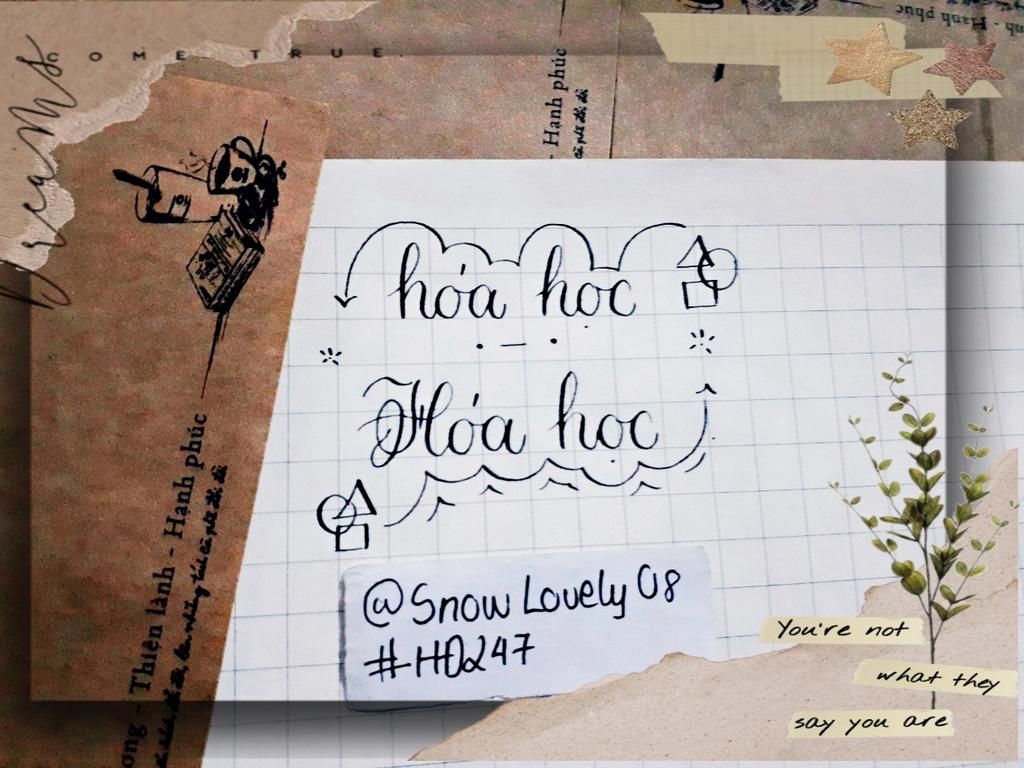 Dreams
COME TRUE.
- Hạnh phúc
Hạnh phúc
hóa học
Hóa học
- Thiện lành - Hạnh phúc
@Snow Lovely 08
#HD247
You're not
what they
say you are